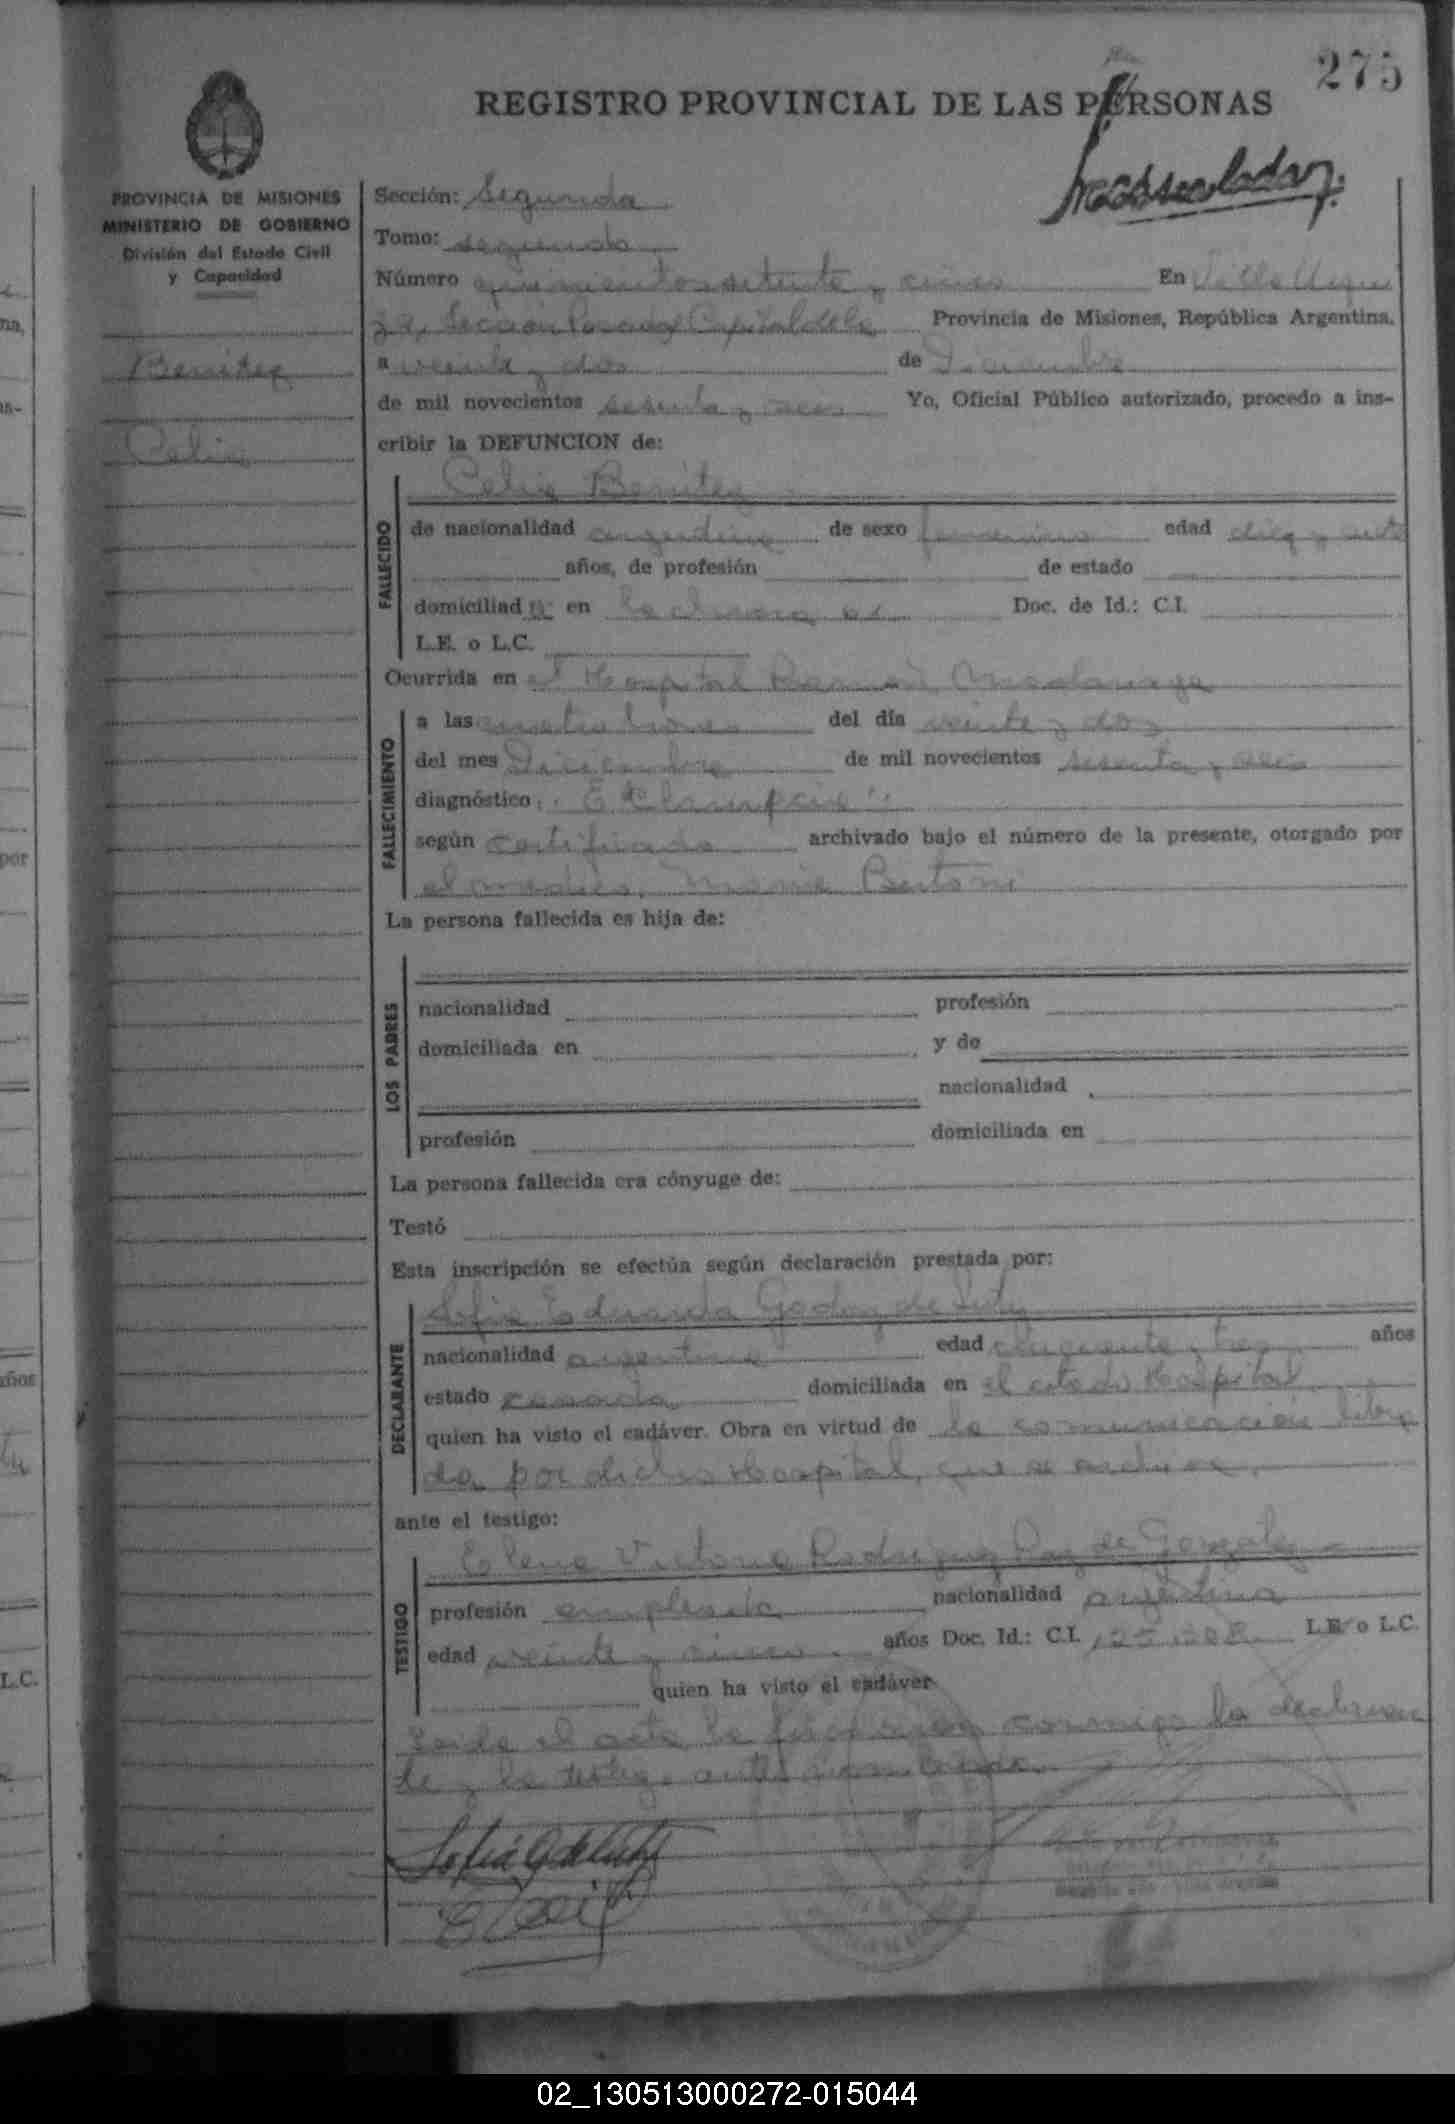 275
REGISTRO PROVINCIAL DE LAS PERSONAS
PROVINCIA DE MISIONES
MINISTERIO DE GOBIERNO
División del Estado Civil
y Capacidad
Benitez
Celia
Sección: Segunda
Tomo: segundo
Número quinientos setenta y cinco En Villa Urqui
za, Seccion Posadas Capital de la Provincia de Misiones, República Argentina,
a veinte y dos de Diciembre
de mil novecientos sesenta y seis Yo, Oficial Público autorizado, procedo a ins-
cribir la DEFUNCION de:
Celia Benitez
FALLECIDO
de nacionalidad argentina de sexo femenino edad diez y siete
años, de profesión de estado
domiciliada en Doc. de Id.: C.I.
L.E. o L.C.
Ocurrida en el Hospital Ramón Madariaga
FALLECIMIENTO
a las cuatro horas del día veinte y dos
del mes Diciembre de mil novecientos sesenta y seis
diagnóstico: "Eclampsia"
según certificado archivado bajo el número de la presente, otorgado por
el medico, Bertoni
La persona fallecida es hija de:
LOS PADRES
nacionalidad profesión
domiciliada en y de
nacionalidad
profesión domiciliada en
La persona fallecida era cónyuge de:
Testó
Esta inscripción se efectúa según declaración prestada por:
DECLARANTE
Sofia Eduarda Godoy de
nacionalidad argentina edad cincuenta y tres años
estado casada domiciliada en el citado Hospital
quien ha visto el cadáver. Obra en virtud de la comunicación libra
da por dicho Hospital, que se archiva.
ante el testigo:
TESTIGO
Elena Victoria Rodriguez Paz de Gonzalez
profesión empleada nacionalidad argentina
edad veinte y cinco años Doc. Id.: C.I. L.E. o L.C.
quien ha visto el cadáver
Leida el acta la firman conmigo la declaran
te y la testigo
02_130513000272-015044